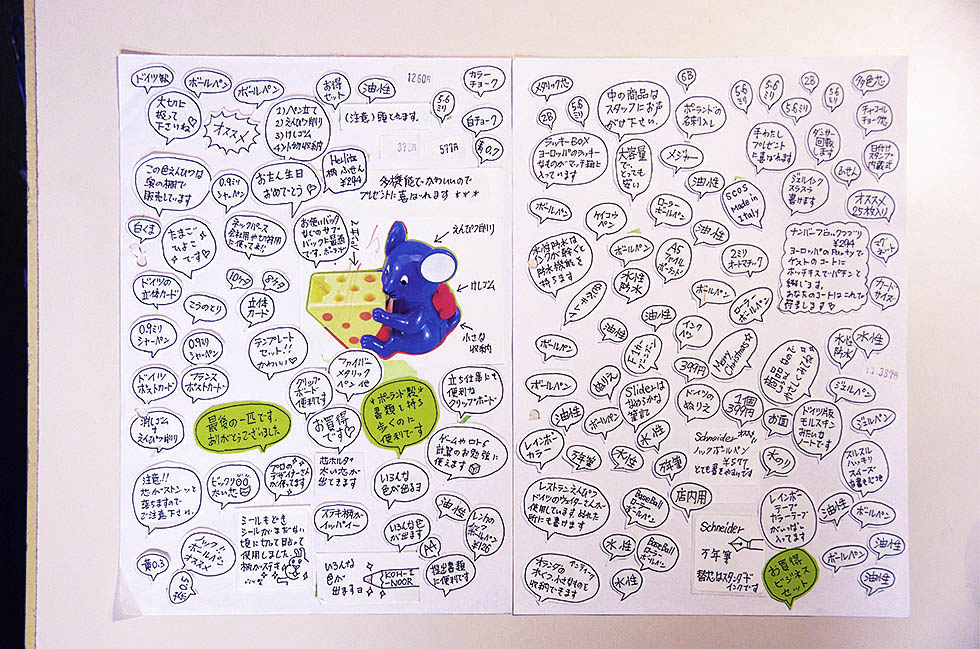 ドイツ製
ボールペン
ボールペン
お得
セット
油性
1260円
カラー
チョーク
大切に
扱って
下さいね♡
オススメ
1)ペン立て
2)えんぴつ削り
3)けしゴム
4)小物収納
(注意)頭とれます。
5.6
ミリ
白チョーク
577円
この色えんぴつは
奥の棚で
販売しています
0.9ミリ
シャーペン
おたん生日
おめでとう♡
¥294
多機能で、かわいいので
プレゼントに喜ばれます
白くま
たまご
ひよこ
です♡
えんぴつ削り
けしゴム
小さな
収納
ドイツの
立体カード
10ケタ
8ケタ
こうのとり
立体
カード
0.9ミリ
シャーペン
0.9ミリ
シャーペン
テンプレート
セット!!
かわいい♡
ファイバー
メタリック
ペン他
ドイツ
ポストカード
フランス
ポストカード
クリップ
ボード
便利です
立ち仕事にも
便利な
クリップボード
消しゴム
えんぴつ削り
最後の一匹です。
ありがとうございました
お買得
です♡
ポーランド製
書類を持ち
歩くのに
便利です
注意!!
芯がストンッと
落ちますので
ご注意下さい。
ビックリ
太い芯
プロの
デザイナーさん
が使ってます
芯ホルダー
太い芯が
出てきます
いろんな
色が出るヨ
ゲームやロト6
計算のお勉強に
使えます♡
シールもどき
シールがまだない
頃に切って貼って
使用しました。
柄がステキ
ステキ柄が
イッパイー
いろんな色
が出ます
油性
黄0.3
ノック!!
ボールペン
オススメ
いろんな
色が
出ますヨ
KOH-I-NOOR
A4
提出書類
に便利です
メタリック芯
2B
5.6
ミリ
中の商品は
スタッフにお声
がけ下さい。
6B
ポーランドの
名刺入レ
5.6
ミリ
5.6
ミリ
5.6ミリ
2B
2B
5.6
ミリ
多色芯
チャコール
チョーク芯
ラッキーBOX
ヨーロッパのラッキー
なものがマッチ箱に
入っています
大容量
で、
とっても
安い
メジャー
手わたし
プレゼント
に喜ばれます
ダンサー
回転
します
日付け
スタンプ
内蔵式
油性
Scos
Made in
Italy
ジェルインク
スラスラ
書けます
ふせん
オススメ
25枚入り
ボールペン
ケイコウ
ペン
ローラー
ボールペン
油性
水性防水は
インクが乾くと
防水機能を
持ちます
ボールペン
水性
防水
A5
ファイル
ボード
2ミリ
オートマチック
¥294
ヨーロッパのPartyで
ゲストのコートに
ホッチキスでパチンと
お渡しします。
あなたのコートはこれで
守ります♡
カード
サイズ
ボールペン
ローラー
ボールペン
油性
油性
インク
ペン
ボールペン
399円
Merry
Christmas☆
水性
防水
389円
ボールペン
ぬりえ
Sliderは
なめらかな
筆記
ドイツの
ぬりえ
1個
399円
お面
ドイツ版
モルスキン
みたいな
ノートです
ジェルペン
油性
ボールペン
水性
Schneider オススメ
ノックボールペン
¥577
とても書き心地いいです
ジェルペン
レインボー
カラー
万年筆
水性
万年筆
水のり
スルスル
ハッキリ
スムーズ
レストランえんぴつ
ドイツのウェイターさんが
使用しています。
所にも書けます
BaseBall
ローラー
ボールペン
店内用
Schneider
万年筆
替芯はスタンダード
インクです
レインボー
テープ
カラーテープ
がいっぱい
入ってます
油性
ボールペン
水性
水性
BaseBall
ローラー
ボールペン
オランダの
アンティーク
ボタン、小さなものを
収納できます
水性
お買得
ビジネス
セット
ボールペン
油性
油性